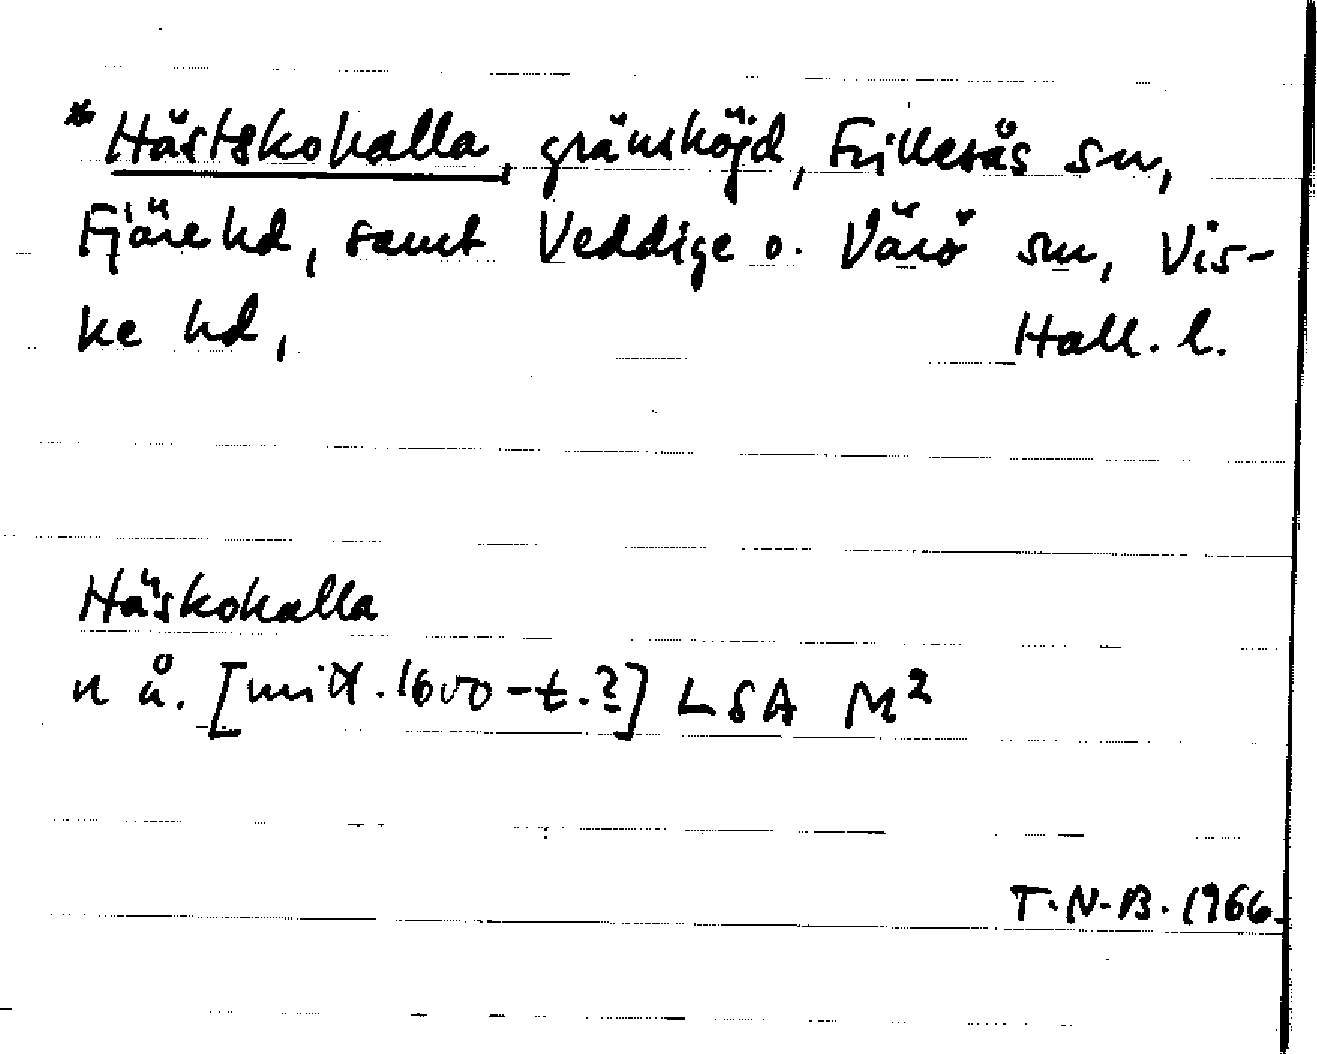 *Hästskohalla, gränshöjd, Frillesås sn,
Fjäre hd, samt Veddige o. Värö sn, Vis-
ke hd, Hall. l.
Häskohalla
n å. [mitt. 1600-t.?] LSA M²
T.N-B. 1966.